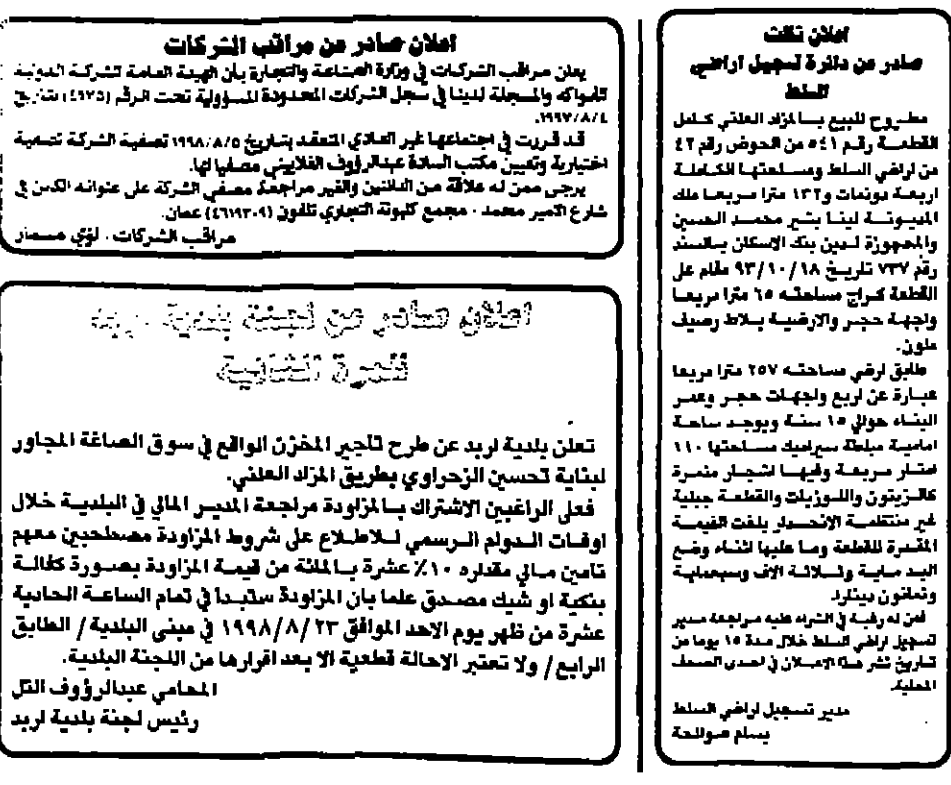 اعلان ثالث
صادر عن دائرة تسجيل اراضي
السلط
مطروح للبيع بالمزاد العلني كامل
القطعة رقم ٥٤١ من الحوض رقم ٤٢
من اراضي السلط ومساحتها الكاملة
اربعة دونمات و١٣٢ مترا مربعا ملك
المديونة لينا بشير محمد الحسين
والمحجوزة لدين بنك الاسكان بالسند
رقم ٧٣٧ تاريخ ٩٣/١٠/١٨ مقام على
القطعة كراج مساحته ٦٥ مترا مربعا
واجهة حجر والارضية بلاط رصيف
ملون.
طابق ارضي مساحته ٢٥٧ مترا مربعا
عبارة عن اربع واجهات حجر وعمر
البناء حوالي ١٥ سنة ويوجد ساحة
امامية مبلطة سيراميك مساحتها ١١٠
امتار مربعة وفيها اشجار مثمرة
كالزيتون واللوزيات والقطعة جبلية
غير منتظمة الانحدار بلغت القيمة
المقدرة للقطعة وما عليها اثناء وضع
اليد ماية وثلاثة الاف وسبعماية
وثمانون دينار.
فمن له رغبة في الشراء عليه مراجعة مدير
تسجيل اراضي السلط خلال مدة ١٥ يوما من
تاريخ نشر هذا الاعلان في احدى الصحف
المحلية.
مدير تسجيل اراضي السلط
بسام صوالحة
اعلان صادر عن مراقب الشركات
يعلن مراقب الشركات في وزارة الصناعة والتجارة بأن الهيئة العامة لشركة الدولية
للفواكه والمسجلة لدينا في سجل الشركات المحدودة المسؤولية تحت الرقم (٤٦٧٥) بتاريخ
١٩٩٧/٨/٤.
قد قررت في اجتماعها غير العادي المنعقد بتاريخ ١٩٩٨/٨/٥ تصفية الشركة تصفية
اختيارية وتعيين مكتب السادة عبدالرؤوف الغلاييني مصفيا لها.
يرجى ممن له علاقة من الدائنين والغير مراجعة مصفي الشركة على عنوانه الكائن في
شارع الامير محمد - مجمع كليوباترة التجاري تلفون (٤٦١٩٣٠٩) عمان.
مراقب الشركات . لؤي مسمار
اعلان صادر عن لجنة بلدية اربد
للمرة الثانية
تعلن بلدية اربد عن طرح تاجير المخزن الواقع في سوق الصاغة المجاور
لبناية تحسين الزحراوي بطريق المزاد العلني.
فعلى الراغبين الاشتراك بالمزاودة مراجعة المدير المالي في البلدية خلال
اوقات الدوام الرسمي للاطلاع على شروط المزاودة مصطحبين معهم
تامين مالي مقداره ١٠٪ عشرة بالمائة من قيمة المزاودة بصورة كفالة
بنكية او شيك مصدق علما بان المزاودة ستبدا في تمام الساعة الحادية
عشرة من ظهر يوم الاحد الموافق ١٩٩٨/٨/٢٣ في مبنى البلدية / الطابق
الرابع / ولا تعتبر الاحالة قطعية الا بعد اقرارها من اللجنة البلدية.
المحامي عبدالرؤوف التل
رئيس لجنة بلدية اربد